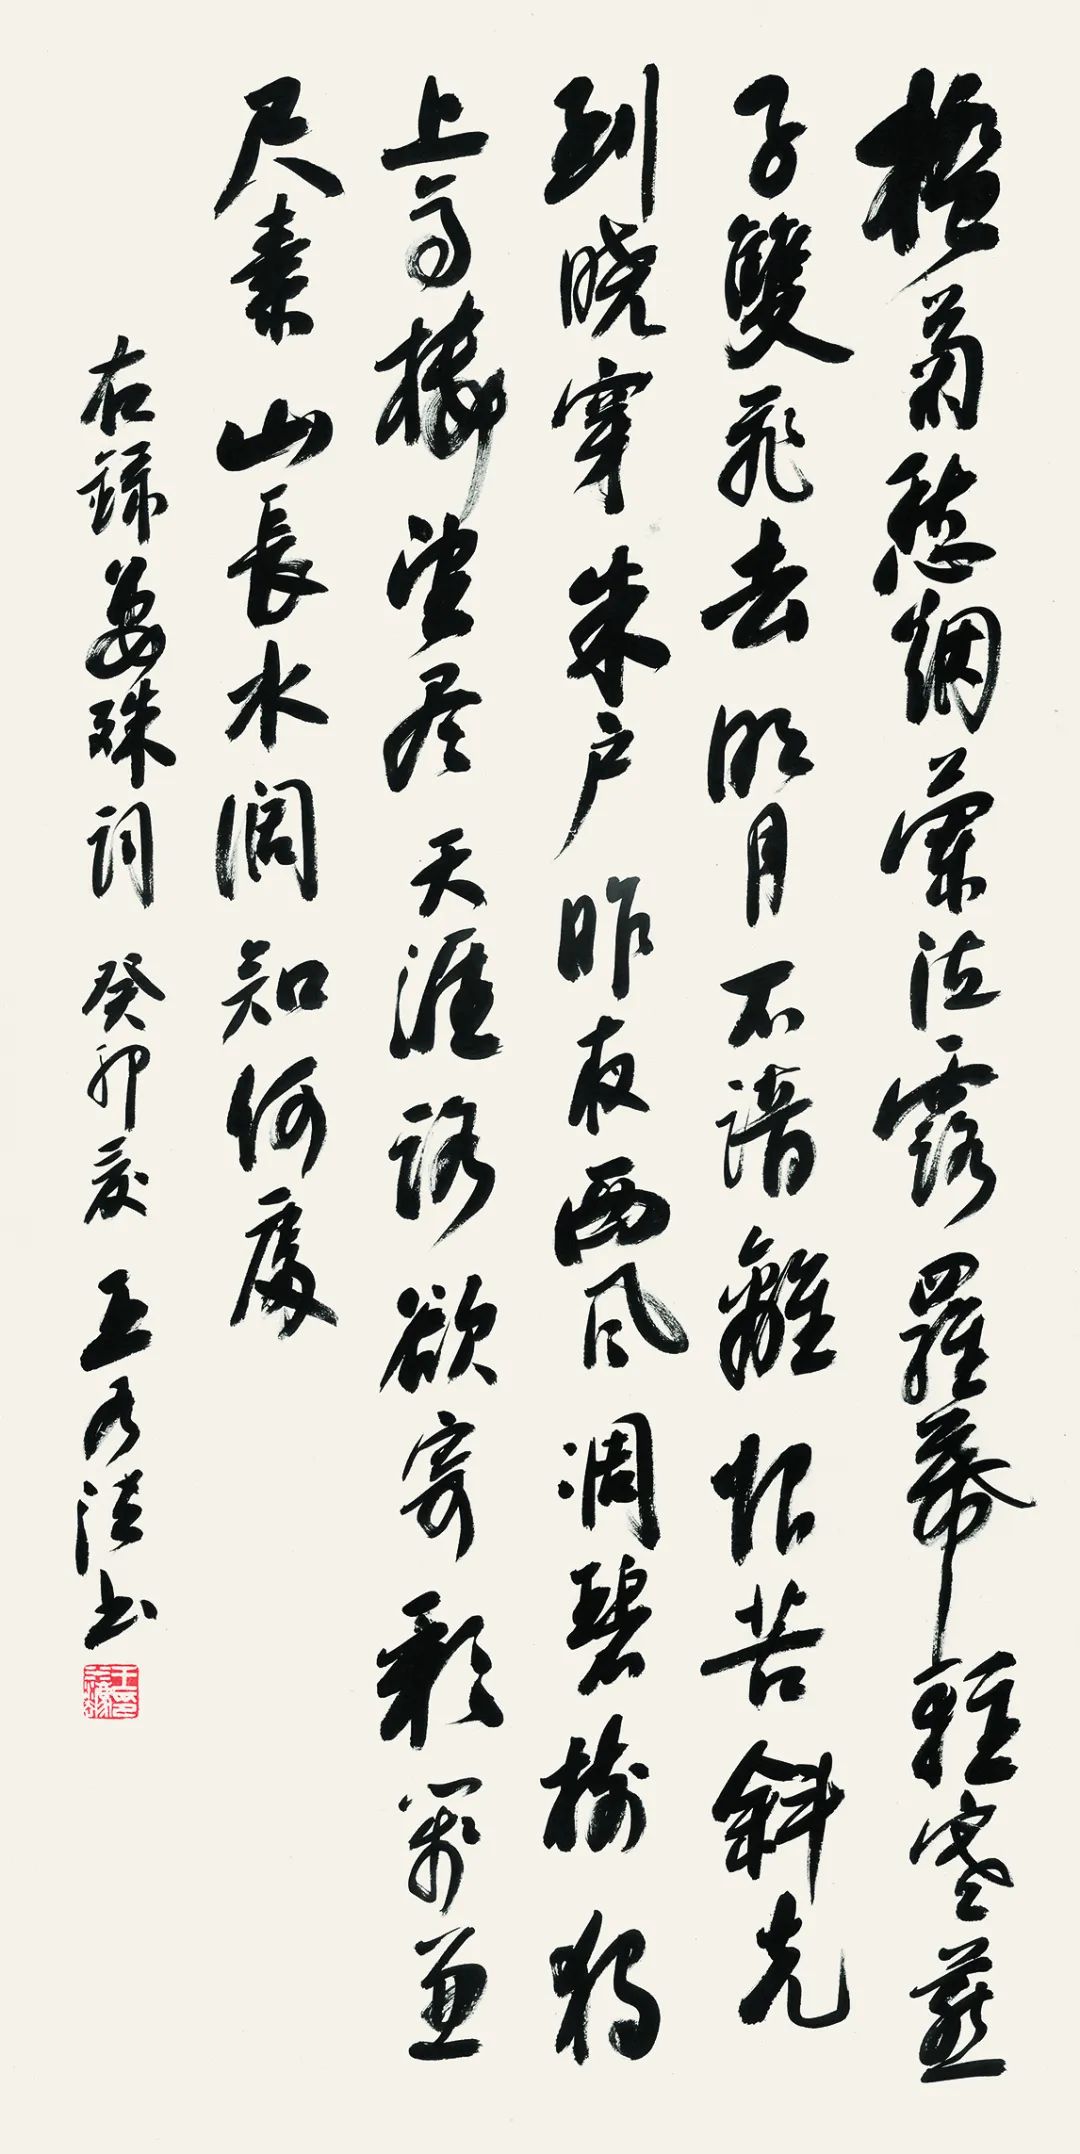 槛菊愁烟蘭泣露羅幕輕寒燕
子雙飛去明月不諳離恨苦斜光
到晓穿朱户昨夜西风凋碧樹獨
上高樓望尽天涯路欲寄彩箋兼
尺素山長水闊知何處
右録晏殊詞癸卯夏王书